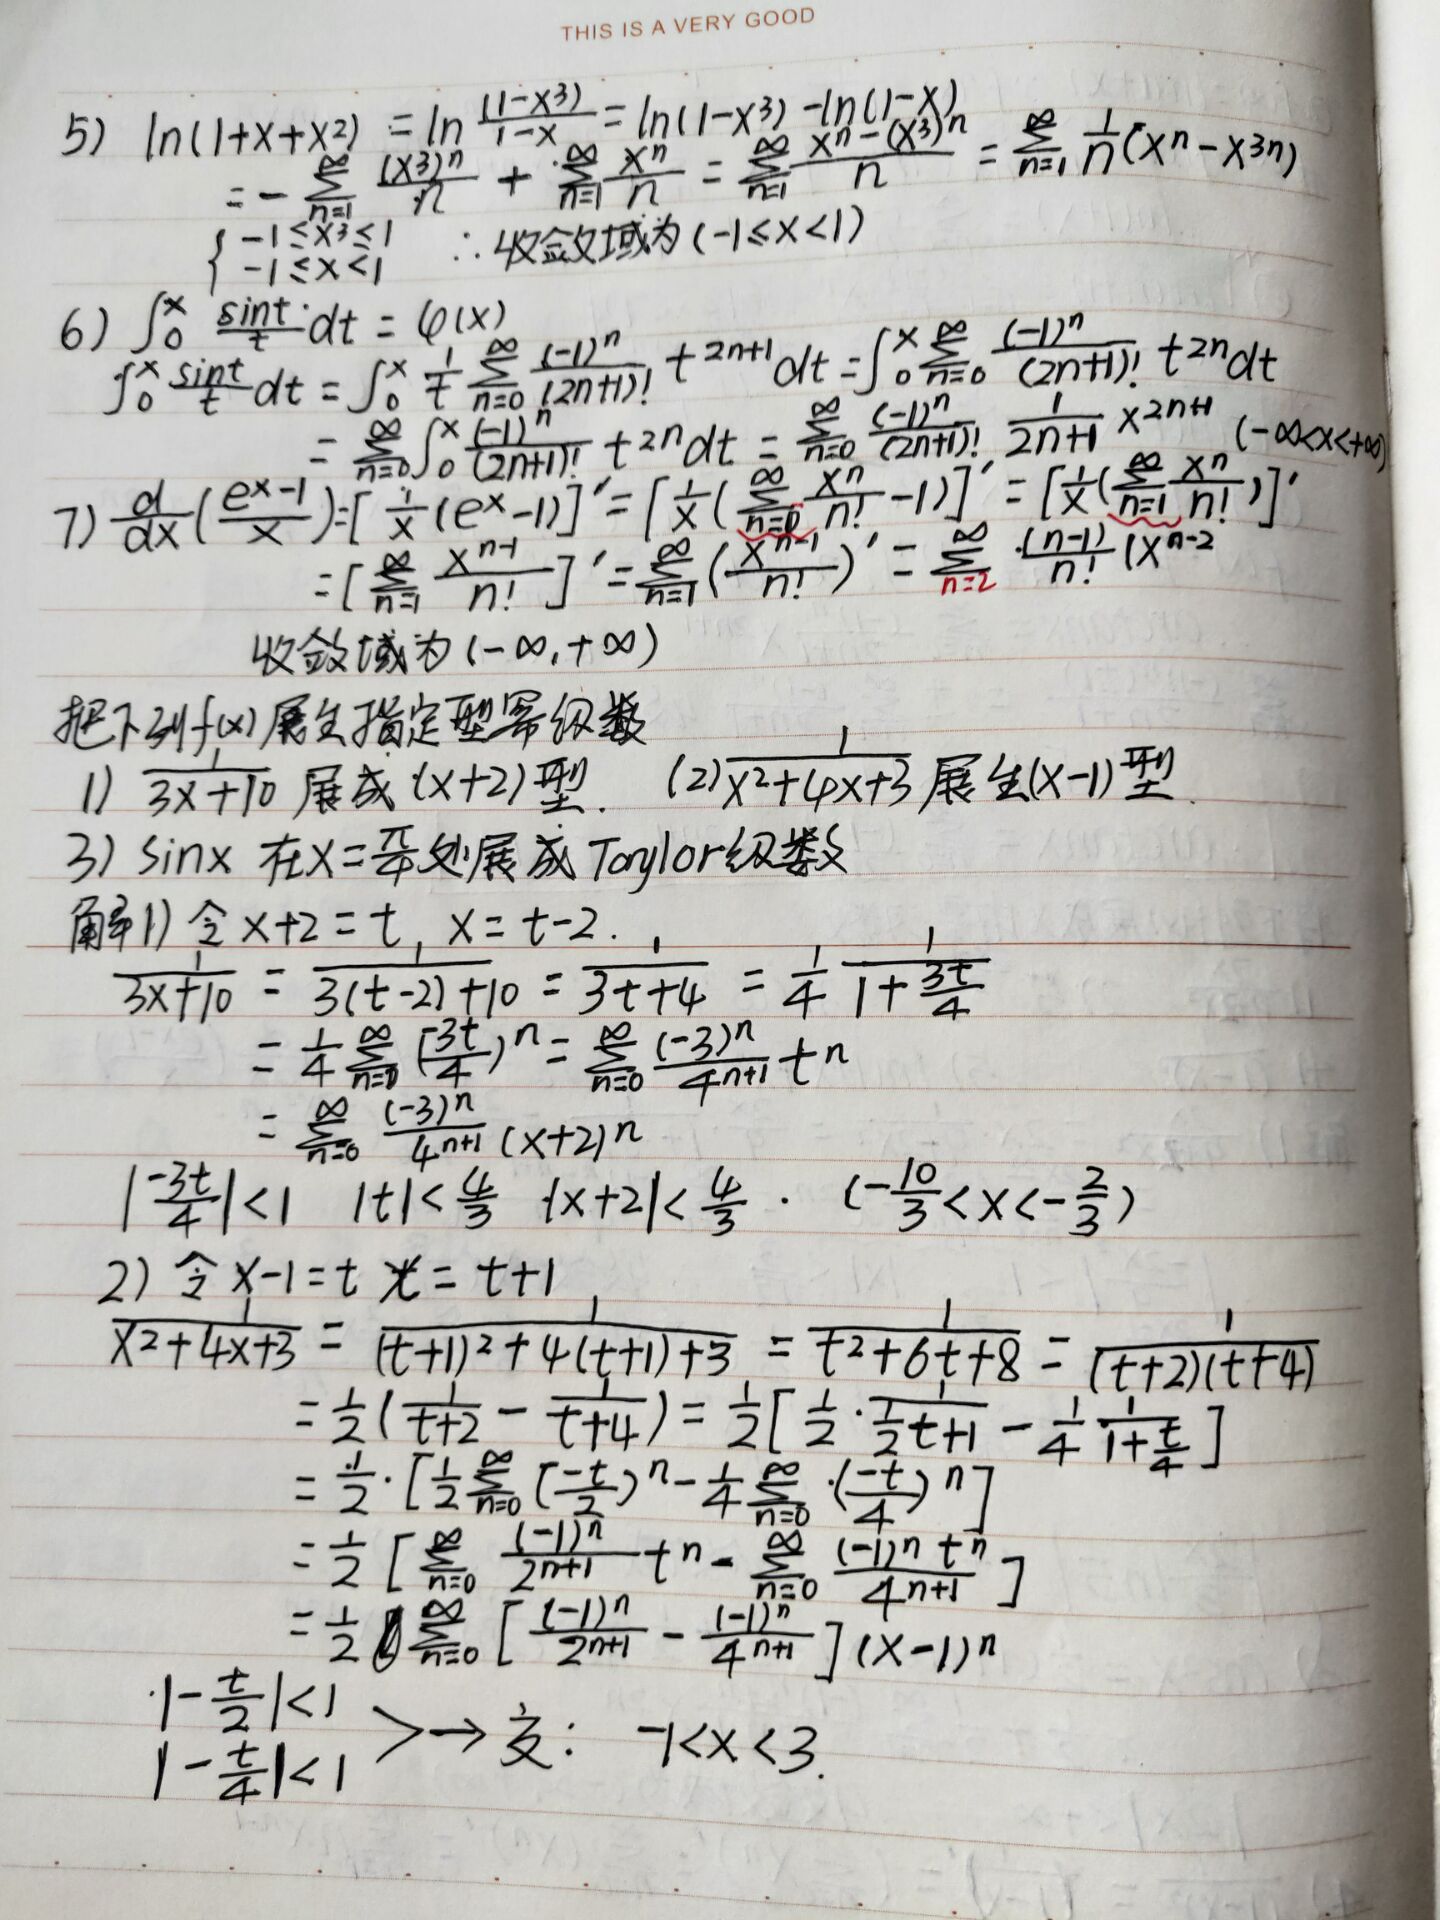 THIS IS A VERY GOOD
5) ln(1+x+x²) = ln (1-x³)/(1-x) = ln(1-x³) - ln(1-x)
= -∑_{n=1}^{∞} (x³)ⁿ/n + ∑_{n=1}^{∞} xⁿ/n = ∑_{n=1}^{∞} (xⁿ-(x³)ⁿ)/n = ∑_{n=1}^{∞} 1/n (xⁿ - x³ⁿ)
{ -1≤x³≤1 ∴收敛域为(-1≤x<1)
-1≤x<1
6) ∫₀ˣ sint/t dt = φ(x)
∫₀ˣ sint/t dt = ∫₀ˣ 1/t ∑_{n=0}^{∞} (-1)ⁿ/(2n+1)! t²ⁿ⁺¹ dt = ∫₀ˣ ∑_{n=0}^{∞} (-1)ⁿ/(2n+1)! t²ⁿ dt
= ∑_{n=0}^{∞} ∫₀ˣ (-1)ⁿ/(2n+1)! t²ⁿ dt = ∑_{n=0}^{∞} (-1)ⁿ/(2n+1)! 1/(2n+1) x²ⁿ⁺¹ (-∞<x<+∞)
7) d/dx((eˣ-1)/x) = [1/x (eˣ-1)]' = [1/x (∑_{n=0}^{∞} xⁿ/n! - 1)]' = [1/x (∑_{n=1}^{∞} xⁿ/n!)]'
= [∑_{n=1}^{∞} xⁿ⁻¹/n!]' = ∑_{n=1}^{∞} (xⁿ⁻¹/n!)' = ∑_{n=2}^{∞} (n-1)/n! (xⁿ⁻²
收敛域为(-∞,+∞)
把下列f(x)展成指定型幂级数
1) 1/(3x+10) 展成(x+2)型. (2) 1/(x²+4x+3) 展成(x-1)型.
3) sinx 在x=π/4处展成Taylor级数
解1) 令x+2=t, x=t-2.
1/(3x+10) = 1/(3(t-2)+10) = 1/(3t+4) = 1/4 1/(1+3t/4)
= 1/4 ∑_{n=0}^{∞} (-3t/4)ⁿ = ∑_{n=0}^{∞} (-3)ⁿ/4ⁿ⁺¹ tⁿ
= ∑_{n=0}^{∞} (-3)ⁿ/4ⁿ⁺¹ (x+2)ⁿ
|-3t/4|<1 |t|<4/3 |x+2|<4/3. (-10/3<x<-2/3)
2) 令x-1=t x=t+1
1/(x²+4x+3) = 1/((t+1)²+4(t+1)+3) = 1/(t²+6t+8) = 1/((t+2)(t+4))
= 1/2 (1/(t+2) - 1/(t+4)) = 1/2 [1/2 · 1/(1/2 t+1) - 1/4 1/(1+t/4)]
= 1/2 · [1/2 ∑_{n=0}^{∞} (-t/2)ⁿ - 1/4 ∑_{n=0}^{∞} ·(-t/4)ⁿ]
= 1/2 [∑_{n=0}^{∞} (-1)ⁿ/2ⁿ⁺¹ tⁿ - ∑_{n=0}^{∞} (-1)ⁿtⁿ/4ⁿ⁺¹]
= 1/2 ∑_{n=0}^{∞} [(-1)ⁿ/2ⁿ⁺¹ - (-1)ⁿ/4ⁿ⁺¹] (x-1)ⁿ
|-t/2|<1
>→交: -1<x<3.
|-t/4|<1